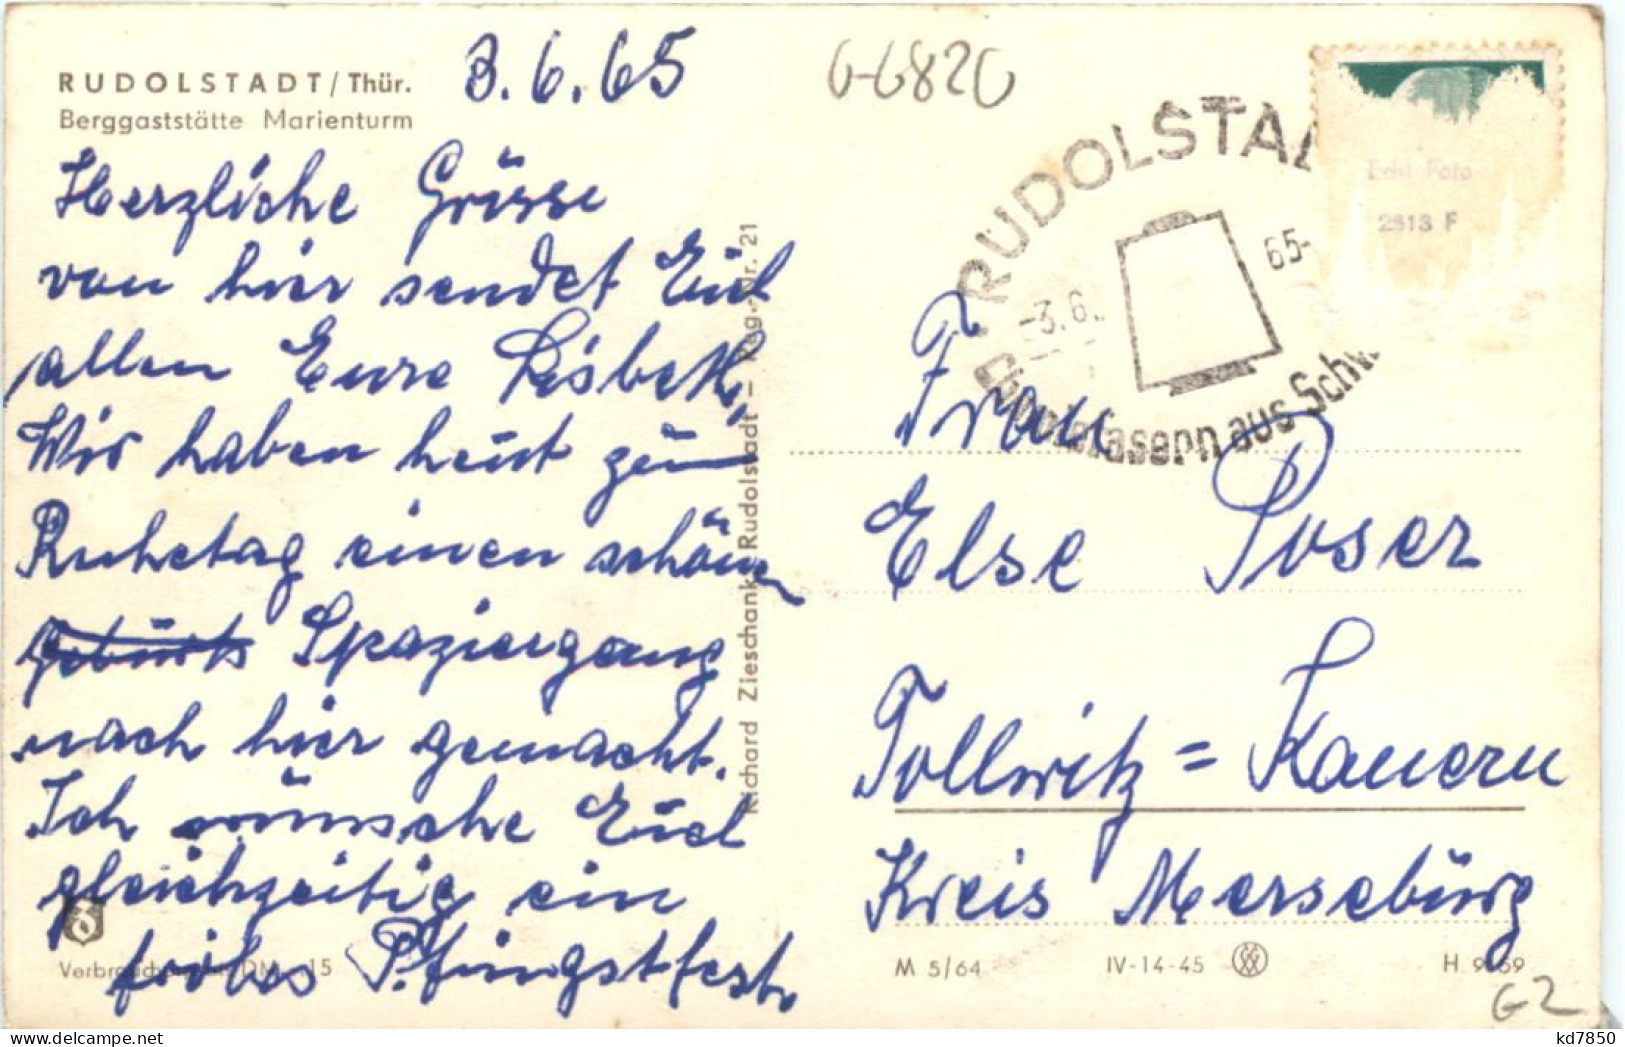 RUDOLSTADT / Thür.
Berggaststätte Marienturm
3.6.65
Herzliche Grüsse
von hier sendet Euch
allen Eure Lisbeth,
Wir haben heut zum
Ruhetag einen schönen
Spaziergang
nach hier gemacht.
Ich wünsche Euch
gleichzeitig ein
frohes Pfingstfest.
Verbraucherpr. DM -.15
Richard Zieschank, Rudolstadt – Reg.-Nr. 21
G-6820
RUDOLSTAD
-3.6.
65-
aus Schw
Echt Foto
2513 F
Frau
Else Poser
Tollwitz = Kauern
Kreis Merseburg
M 5/64
IV-14-45
H 9159
G2
kd7850